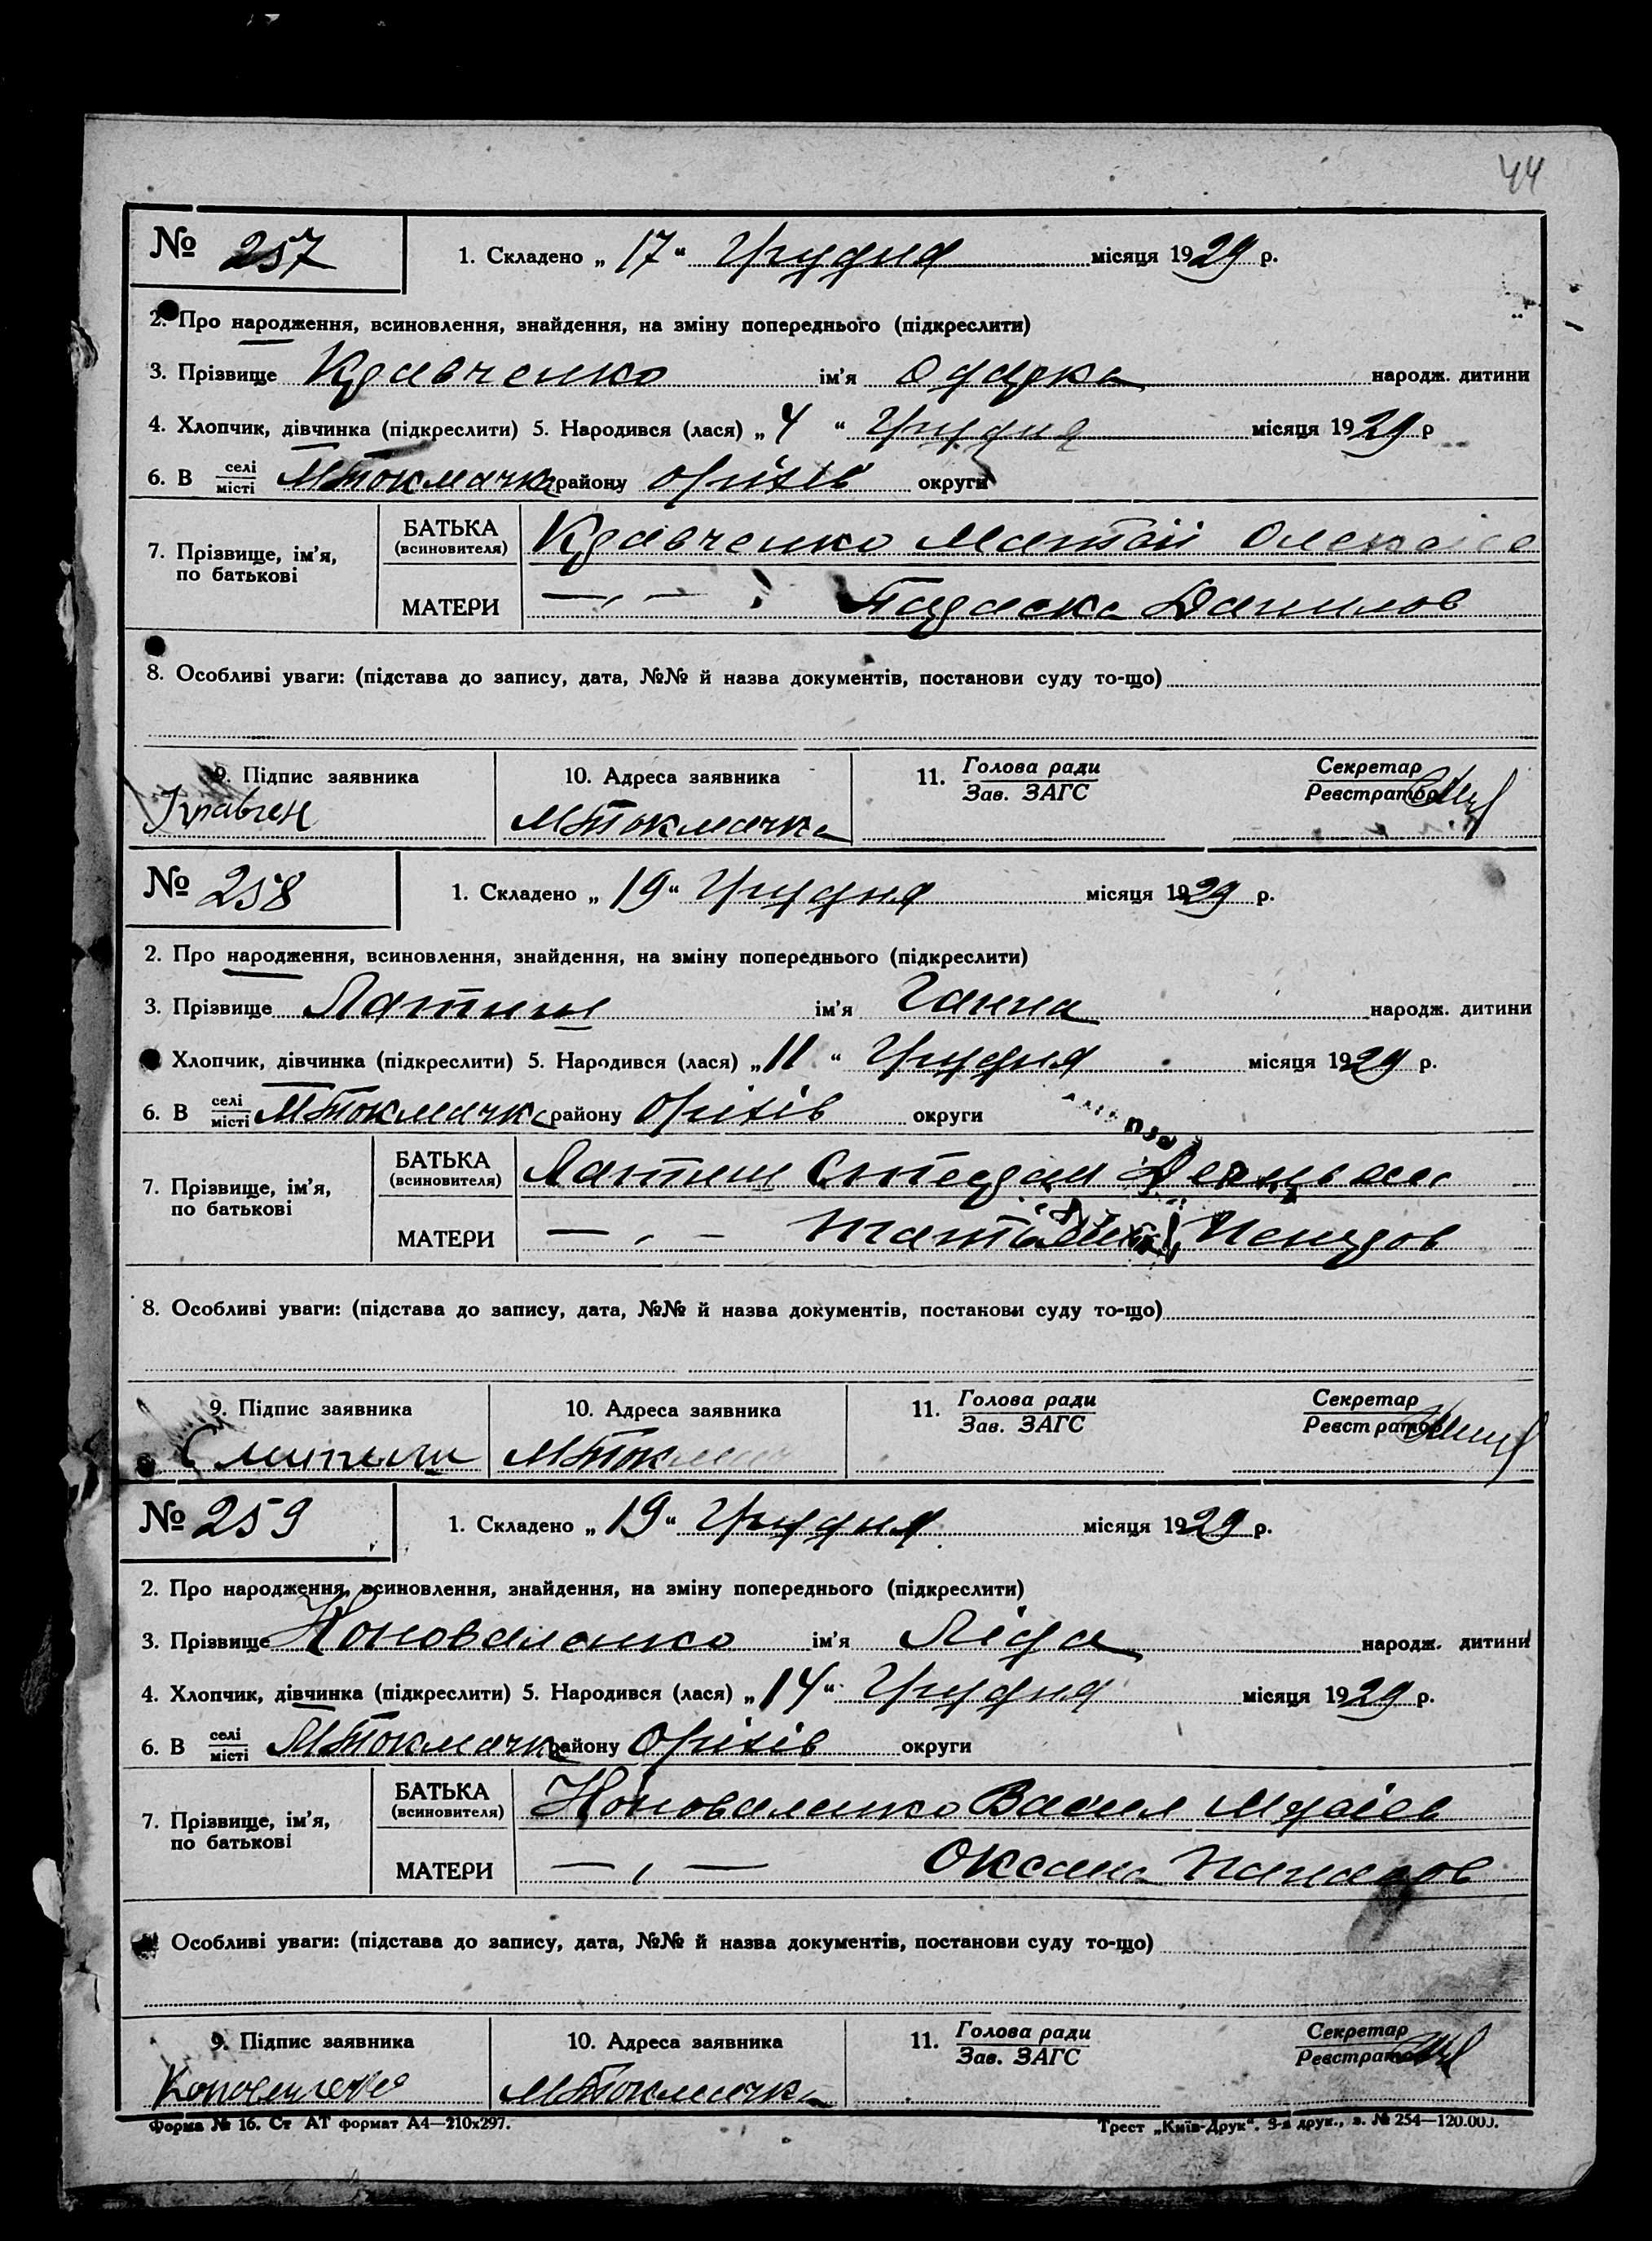 44
№ 257 1. Складено „17“ Грудня місяця 1929 р.
2. Про народження, всиновлення, знайдення, на зміну попереднього (підкреслити)
3. Прізвище Кравченко ім'я Одарка народж. дитини
4. Хлопчик, дівчинка (підкреслити) 5. Народився (лася) „4“ Грудня місяця 1929 р
6. В селі місті МТокмачка району Оріхів округи
7. Прізвище, ім'я, по батькові
БАТЬКА (всиновителя) Кравченко Матвій
МАТЕРИ —„— Параска Данилов
8. Особливі уваги: (підстава до запису, дата, №№ й назва документів, постанови суду то-що)
9. Підпис заявника 10. Адреса заявника 11. Голова ради Зав. ЗАГС Секретар Реєстратор
Кравчен МТокмачка
№ 258 1. Складено „19“ Грудня місяця 1929 р.
2. Про народження, всиновлення, знайдення, на зміну попереднього (підкреслити)
3. Прізвище Латиш ім'я Ганна народж. дитини
Хлопчик, дівчинка (підкреслити) 5. Народився (лася) „11“ Грудня місяця 1929 р.
6. В селі місті МТокмачка району Оріхів округи
7. Прізвище, ім'я, по батькові
БАТЬКА (всиновителя) Латиш
МАТЕРИ —„—
8. Особливі уваги: (підстава до запису, дата, №№ й назва документів, постанови суду то-що)
9. Підпис заявника 10. Адреса заявника 11. Голова ради Зав. ЗАГС Секретар Реєстратор
МТокмач
№ 259 1. Складено „19“ Грудня місяця 1929 р.
2. Про народження, всиновлення, знайдення, на зміну попереднього (підкреслити)
3. Прізвище Коноваленко ім'я Ліда народж. дитини
4. Хлопчик, дівчинка (підкреслити) 5. Народився (лася) „14“ Грудня місяця 1929 р.
6. В селі місті МТокмачка району Оріхів округи
7. Прізвище, ім'я, по батькові
БАТЬКА (всиновителя) Коноваленко Васил
МАТЕРИ —„— Оксана Панасов
Особливі уваги: (підстава до запису, дата, №№ й назва документів, постанови суду то-що)
9. Підпис заявника 10. Адреса заявника 11. Голова ради Зав. ЗАГС Секретар Реєстратор
Коноваленко МТокмачка
Форма № 16. Ст АТ формат А4—210х297. Трест „Київ-Друк“. 3-я друк., з. № 254—120.000.